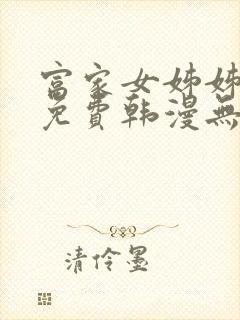 富家女姊姊
免費韩漫無
清伶墨